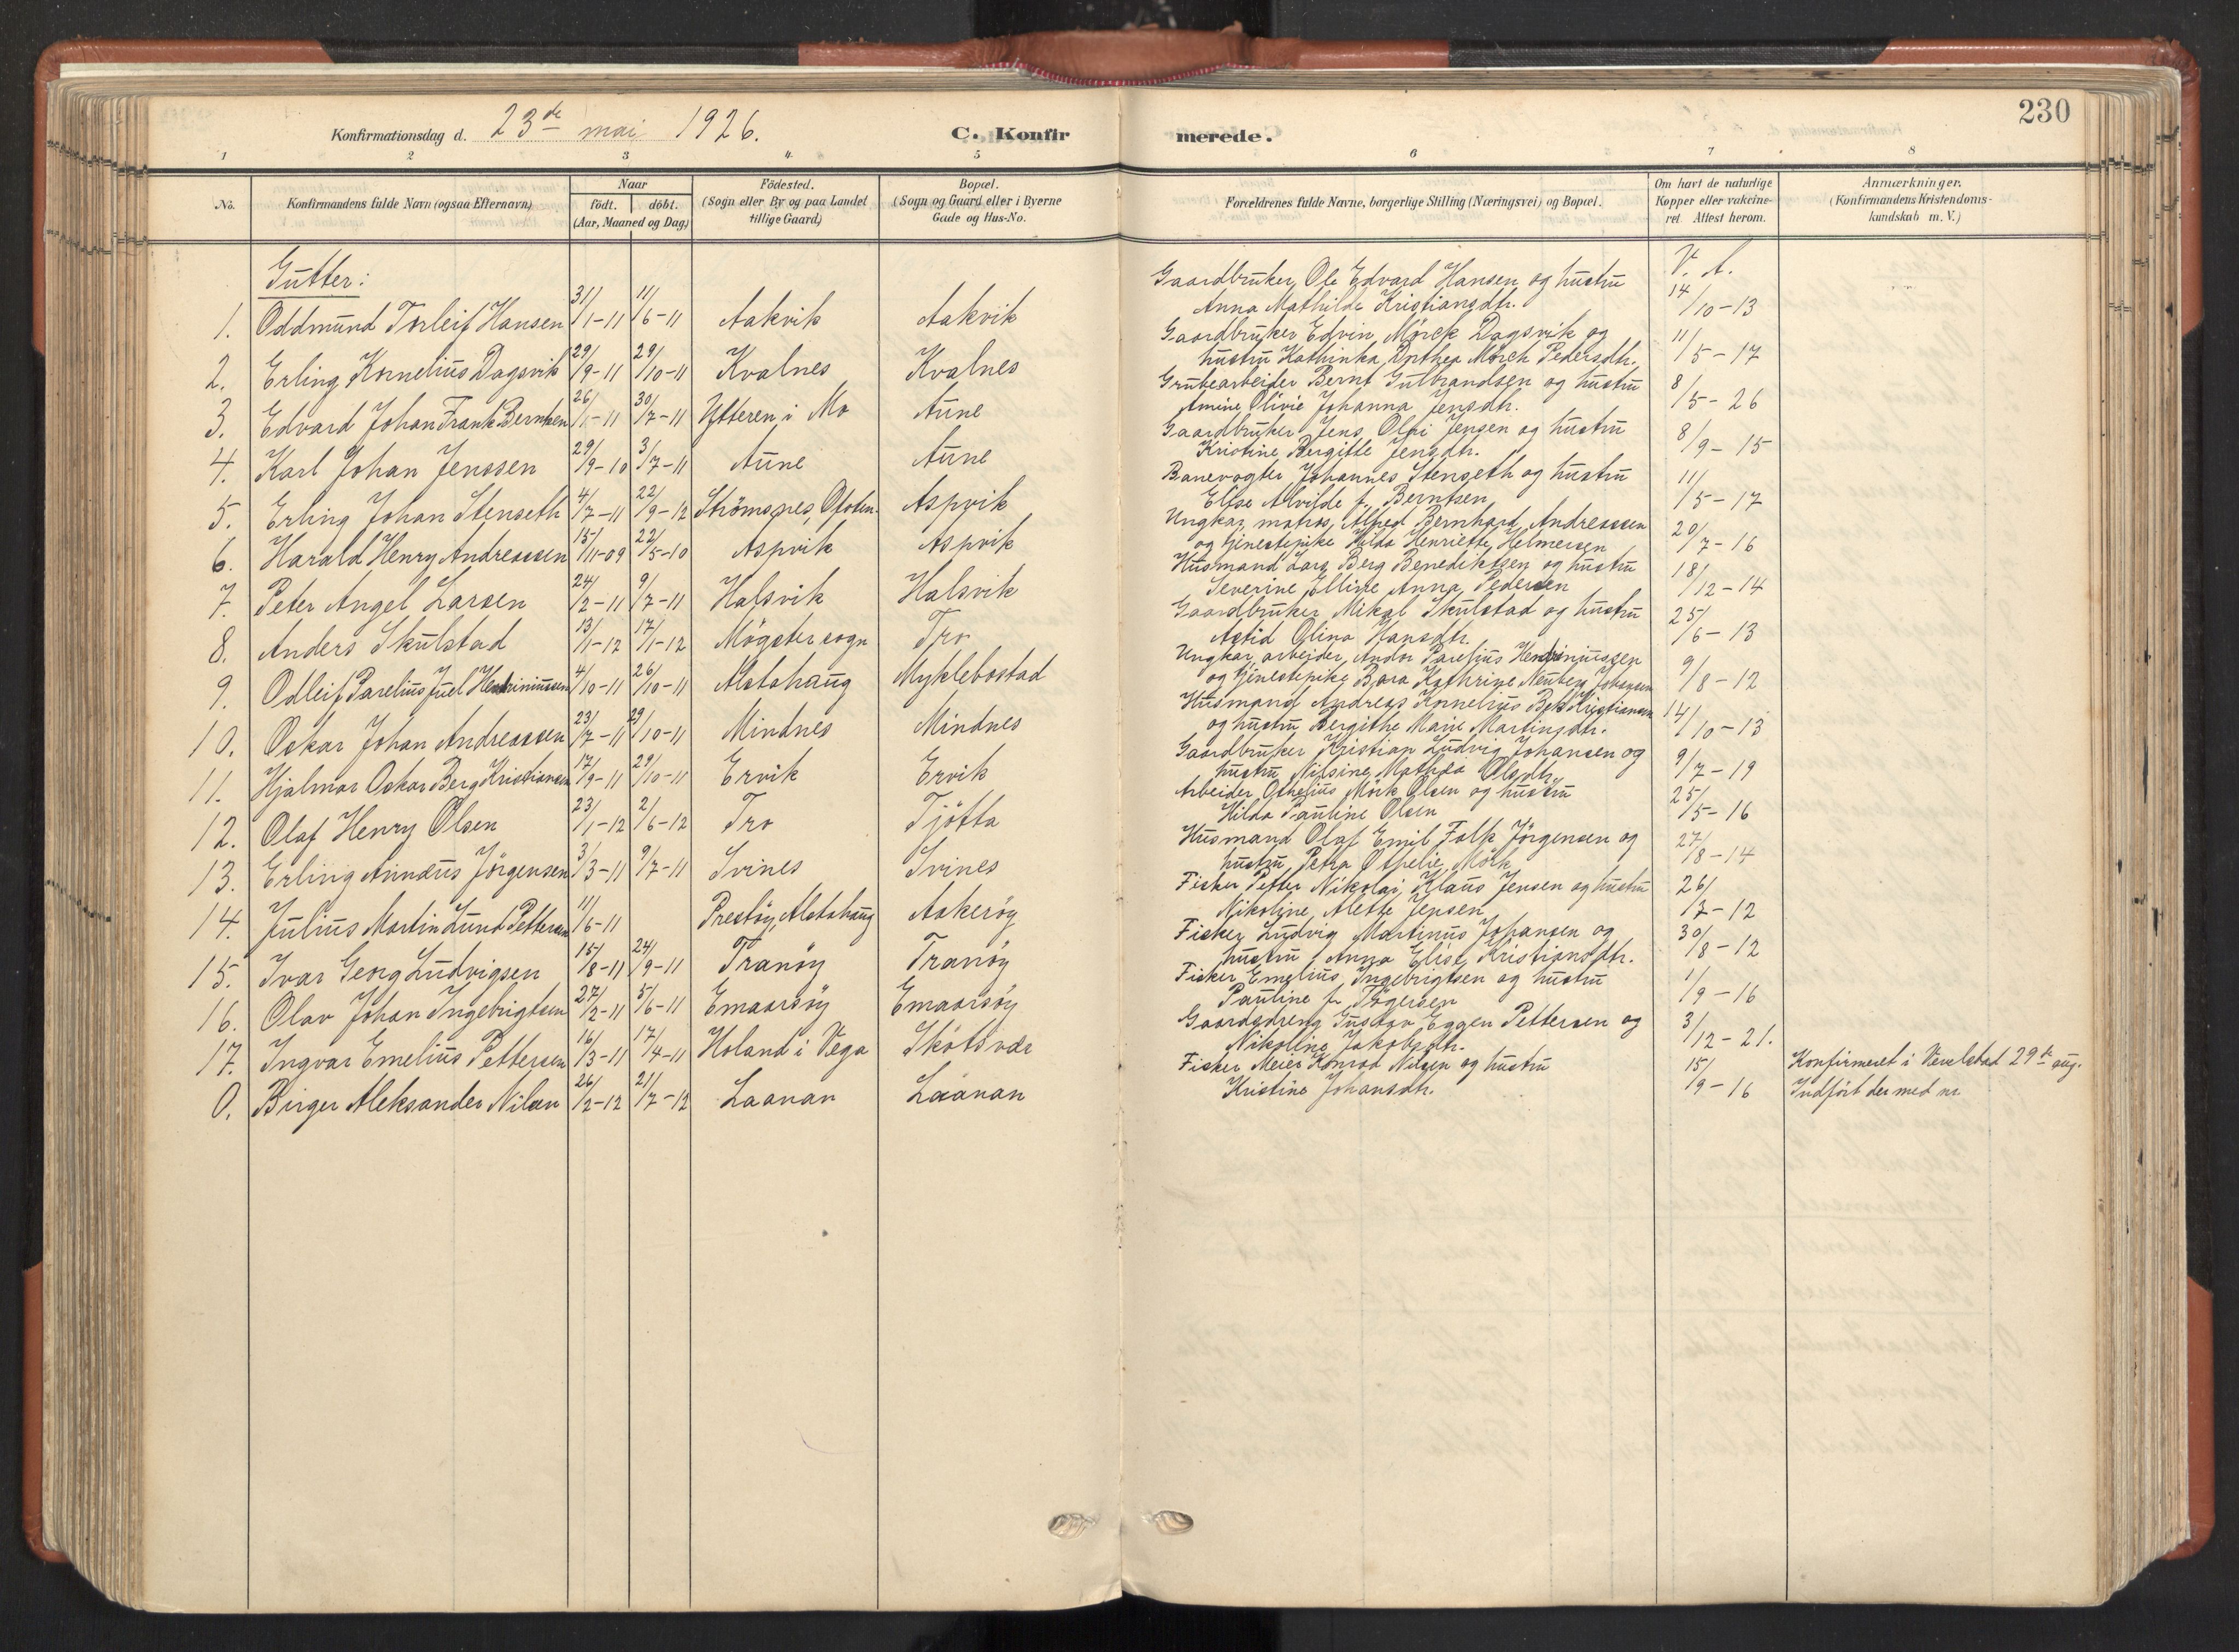 230
Konfirmationsdag d. 23de mai 1926. C. Konfir merede.
1 2 3 4 5 6 7 8
No. Konfirmandens fulde Navn (ogsaa Efternavn) Naar födt. döbt. (Aar, Maaned og Dag) Födested. (Sogn eller By og paa Landet tillige Gaard) Bopæl. (Sogn og Gaard eller i Byerne Gade og Hus-No. Forældrenes fulde Navne, borgerlige Stilling (Næringsvei) og Bopæl. Om havt de naturlige Kopper eller vakcineret. Attest herom. Anmærkninger. (Konfirmandens Kristendomskundskab m. V.)
Gutter: V. A.
1. Oddmund Torleif Hansen 31/1-11 11/6-11 Aakvik Aakvik Gaardbruker Ole Edvard Hansen og hustru Anna Mathilde Kristiansdtr. 14/10-13
2. Erling Kornelius Dagsvik 29/9-11 29/10-11 Kvalnes Kvalnes Gaardbruker Edvin Mörck Dagsvik og hustru Kathinka Dorthea Mörch Pedersdtr. 11/5-17
3. Edvard Johan Frank Berntsen 26/1-11 30/7-11 Ytteren i Mo Aune Grubearbeider Bernt Gulbrandsen og hustru Amine Olivie Johanna Jensdtr. 8/5-26
4. Karl Johan Jenssen 29/9-10 3/7-11 Aune Aune Gaardbruker Jens Olai Jensen og hustru Kristine Bergitte Jensdtr. 8/9-15
5. Erling Johan Stenseth 4/7-11 22/9-12 Strömsnes, Ofoten. Aspvik Banevogter Johannes Stenseth og hustru Elise Alvilde f. Berntsen 11/5-17
6. Harald Henry Andreassen 15/11-09 22/5-10 Aspvik Aspvik Ungkar, matros, Alfred Bernhard Andreassen og tjenestepike Hilda Henriette Helmersen 20/7-16
7. Peter Angel Larsen 24/2-11 9/7-11 Halsvik Halsvik Husmand Lars Berg Benediktsen og hustru Severine Elline Anna Pedersen 18/12-14
8. Anders Skulstad 13/1-12 17/1-12 Mögster sogn Tro Gaardbruker Mikal Skulstad og hustru Astid Olina Hansdtr. 25/6-13
9. Odleif Parelius Juel Hendriniussen 4/10-11 26/10-11 Alstahaug Myklebostad Ungkar, arbeider, Andor Parelius Hendriniussen og tjenestepike Bara Kathrine Neuberg Johansen 9/8-12
10. Oskar Johan Andreassen 23/7-11 29/10-11 Mindnes Mindnes Husmand Andreas Kornelius Bek Kristiansen og hustru Bergithe Marie Martinsdtr. 14/10-13
11. Hjalmar Oskar Berg Kristiansen 17/9-11 29/10-11 Ervik Ervik Gaardbruker Kristian Ludvig Johansen og hustru Nilsine Mathea Olsdtr. 9/7-19
12. Olaf Henry Olsen 23/1-12 2/6-12 Tro Tjötta Arbeider Othelius Mörk Olsen og hustru Hilda Pauline Olsen 25/5-16
13. Erling Annæus Jörgensen 3/3-11 9/7-11 Svines Svines Husmand Olaf Emil Falk Jörgensen og hustru Petra Othelie Mörk 27/8-14
14. Julius Martin Lund Pettersen 11/6-11 Prestöy, Alstahaug Aakeröy Fisker Petter Nikolai Klaus Jensen og hustru Nikoline Alette Jensen 26/3-12
15. Ivar Georg Ludvigsen 15/8-11 24/9-11 Tranöy Tranöy Fisker Ludvig Martinus Johansen og hustru Anna Elise Kristiansdtr. 30/8-12
16. Olav Johan Ingebrigtsen 27/2-11 5/6-11 Emaarsöy Emaarsöy Fisker Emelius Ingebrigtsen og hustru Pauline f. Bögersen 1/9-16
17. Ingvar Emelius Pettersen 16/3-11 17/4-11 Holand i Vega Skötsvær Gaardsdreng Gustav Eggen Pettersen og Nikoline Jakobsdtr. 3/12-21.
0. Birger Aleksander Nilsen 26/2-12 21/7-12 Laanan Laanan Fisker Meier Konrad Nilsen og hustru Kristine Johansdtr. 15/9-16 Konfirmeret i Vevelstad 29de aug. Indfört der med nr.